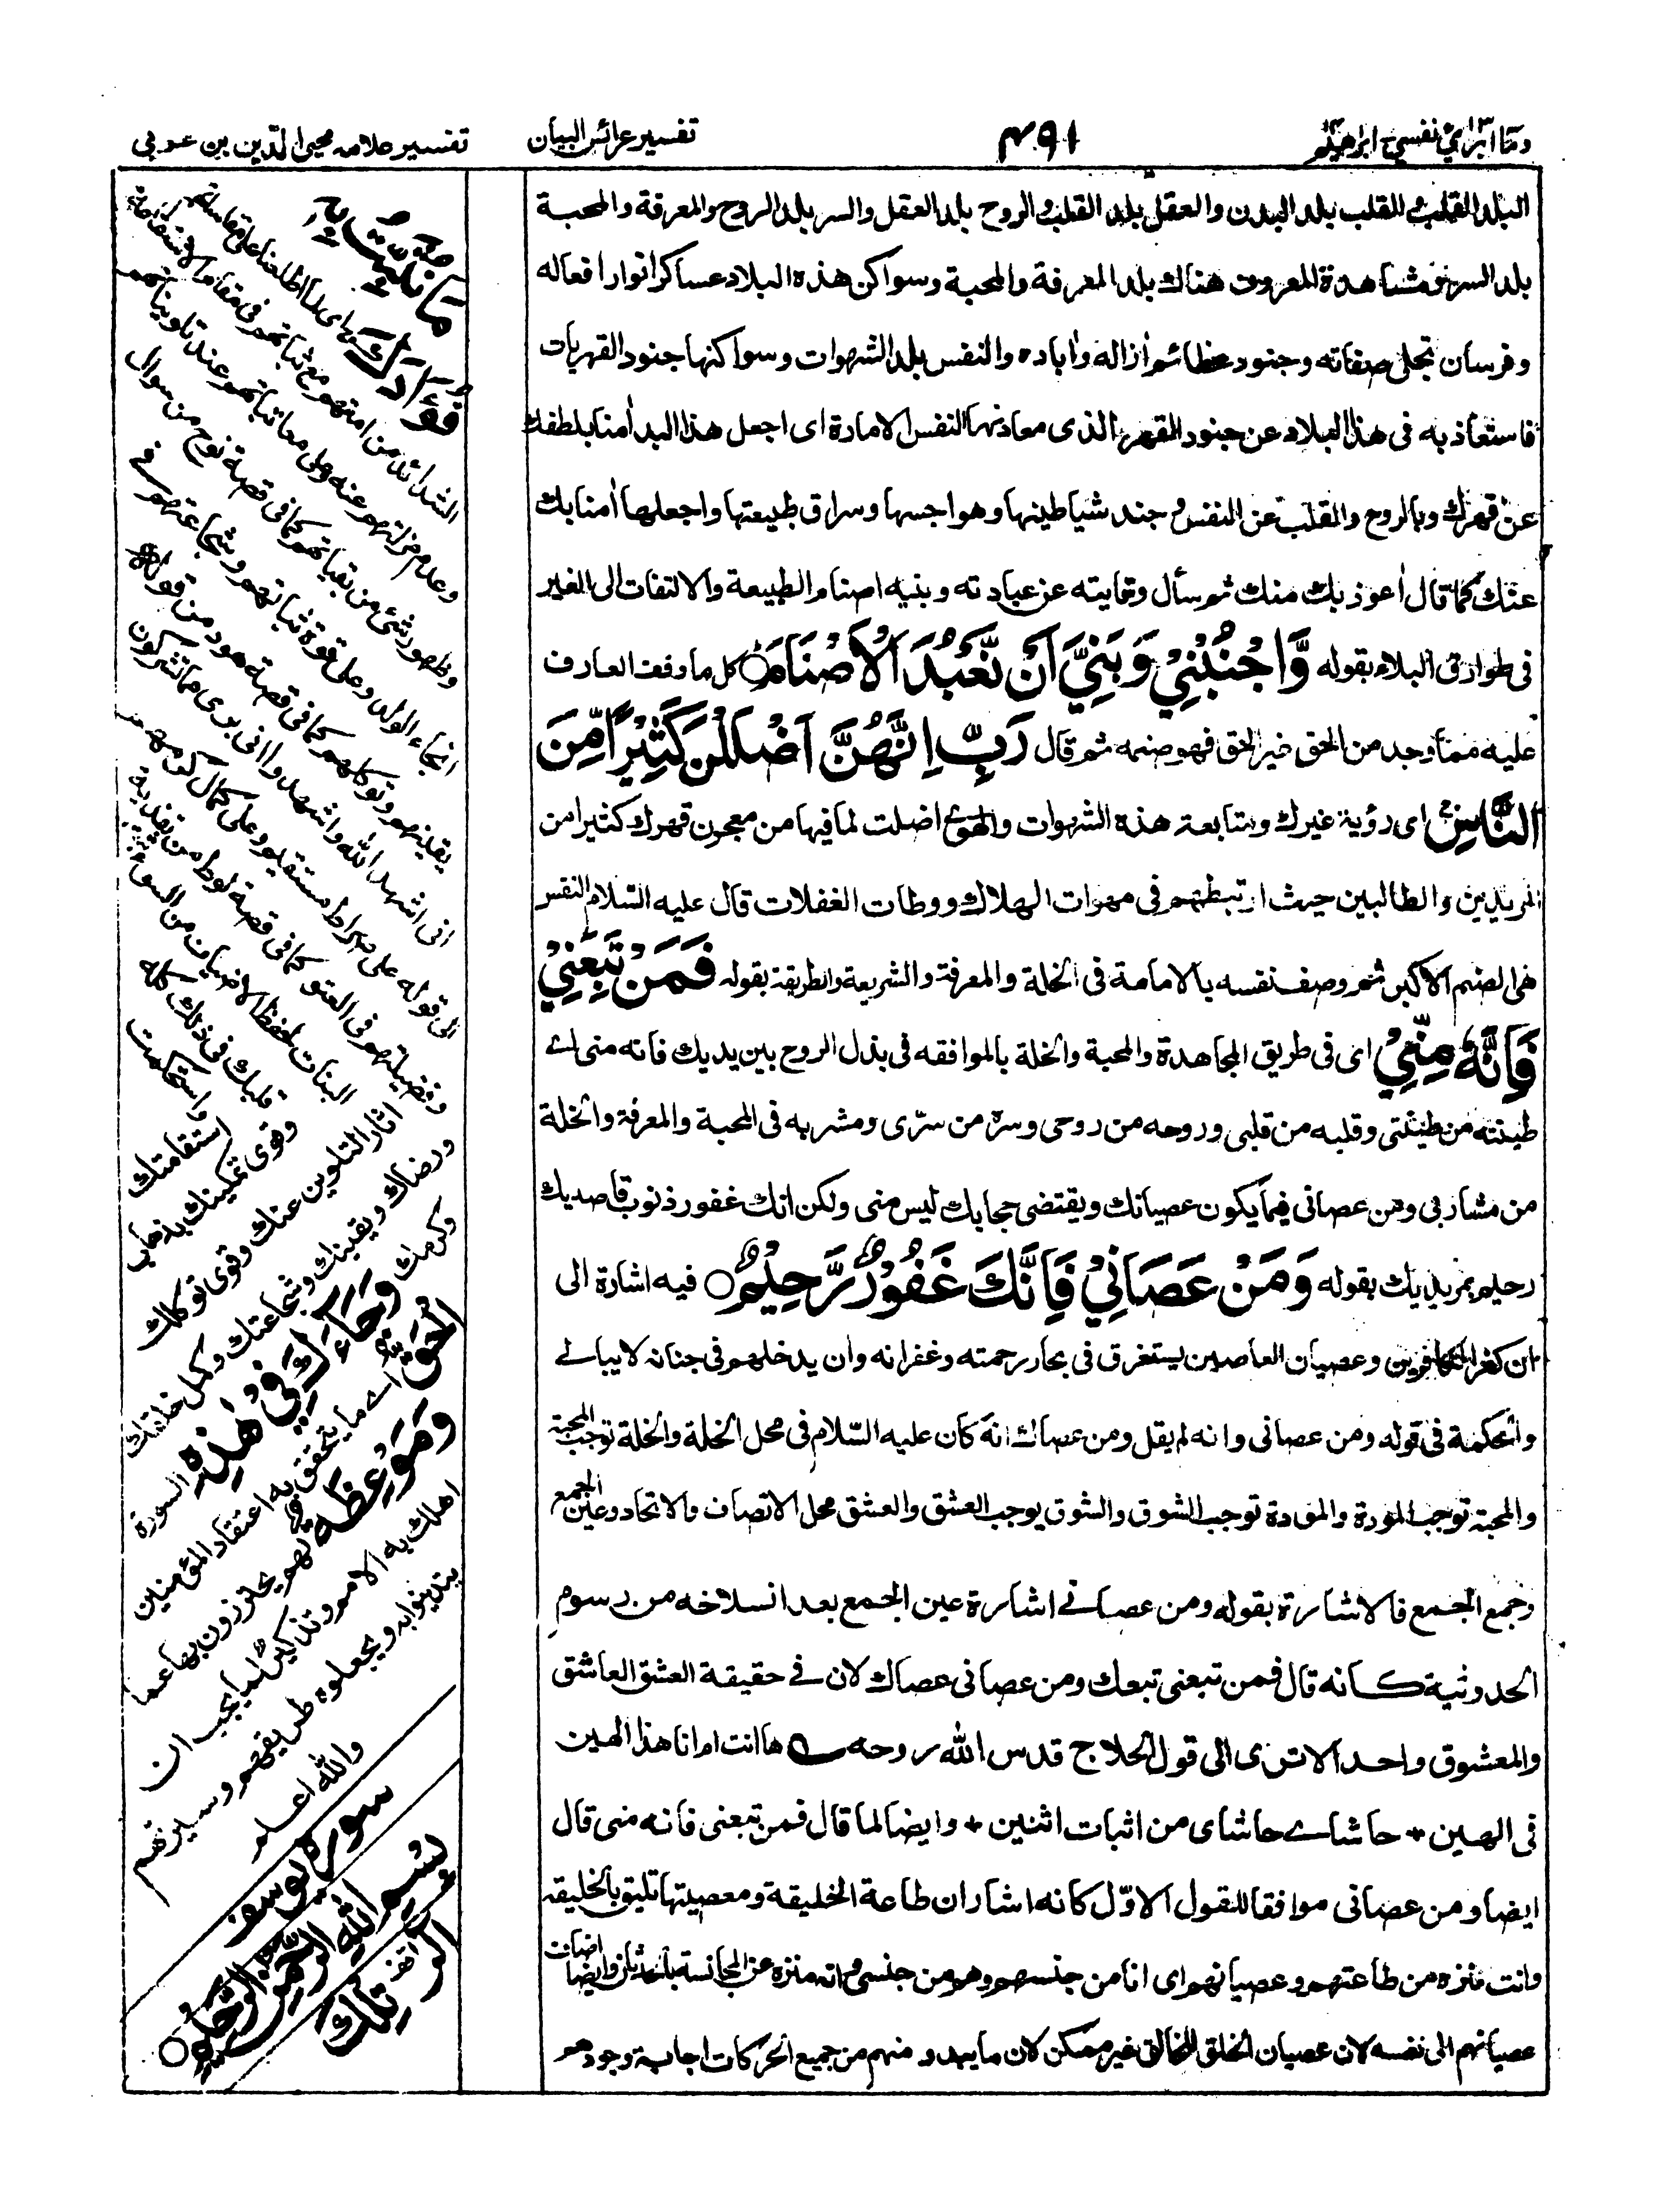 وما ابرئ نفسي ١٣ ابراهيم
٤٩١
تفسير عرائس البيان
تفسير علامه محيى الدين بن عربي
البلد القلب للقلب بلد البدن والعقل بلد القلب والروح بلد العقل والسر بلد الروح والمعرفة والمحبة
بلد السر ومشاهدة المعروف هناك بلد المعرفة والمحبة وسواكن هذه البلاد عساكر انوار افعاله
وفرسان تجلى صفاته وجنود عظائم ازاله واباده والنفس بلد الشهوات وسواكنها جنود القهريات
فاستعاذ به فى هذا البلاد عن جنود القهر الذى معادنها النفس الامارة اى اجعل هذا البلد أمنا بلطفك
عن قهرك وبالروح والقلب عن النفس وجند شياطينها وهواجسها وسراق طبيعتها واجعلها أمنا بك
عنك كما قال اعوذ بك منك ثم سأل وقايته عن عبادته وبنيه اصنام الطبيعة والالتفات الى الغير
فى طوارق البلاء بقوله وَّاجْنُبْنِيْ وَبَنِيَّ اَنْ نَّعْبُدَ الْاَصْنَامَ كل ما وقف العارف
عليه مما وجد من الحق غير الحق فهو صنمه ثم قال رَبِّ اِنَّهُنَّ اَضْلَلْنَ كَثِيْرًا مِّنَ
النَّاسِ اى رؤية غيرك ومتابعة هذه الشهوات والهوى اضلت لما فيها من معجون قهرك كثيرا من
المريدين والطالبين حيث ارتبطتهم فى مهوات الهلاك ووطات الغفلات قال عليه السلام النفس
هى الصنم الاكبر ثم وصف نفسه بالامامة فى الخلة والمعرفة والشريعة والطريقة بقوله فَمَنْ تَبِعَنِيْ
فَاِنَّهٗ مِنِّيْ اى فى طريق المجاهدة والمحبة والخلة بالموافقه فى بذل الروح بين يديك فانه منى اے
طينته من طينتى وقلبه من قلبى وروحه من روحى وسره من سرّى ومشربه فى المحبة والمعرفة والخلة
من مشاربى ومن عصانى فيما يكون عصيانك ويقتضى حجابك ليس منى ولكن انك غفور ذنوب قاصديك
رحيم بمريديك بقوله وَمَنْ عَصَانِيْ فَاِنَّكَ غَفُوْرٌ رَّحِيْمٌ فيه اشارة الى
ان كفر الكافرين وعصيان العاصين يستغرق فى بحار رحمته وغفرانه وان يدخلهم فى جنانه لا يبالے
والحكمة فى قوله ومن عصانى وانه لم يقل ومن عصاك انه كان عليه السّلام فى محل الخلة والخلة توجب المحبة
والمحبة توجب المودة والمودة توجب الشوق والشوق يوجب العشق والعشق محل الاتصاف والاتحاد وعين الجمع
وجمع الجمع فالاشارة بقوله ومن عصانے اشارة عين الجمع بعد انسلاخه من رسوم
الحدوثية كانه قال فمن تبعنى تبعك ومن عصانى عصاك لان فے حقيقة العشق العاشق
والمعشوق واحد الا ترى الى قول الحلاج قدس الله روحه ها انت ام انا هذا الهين
فى الهين + حاشاے حاشاى من اثبات اثنين + وايضا لما قال فمن تبعنى فانه منى قال
ايضا ومن عصانى موافقا للقول الاوّل كانه اشار ان طاعة الخليقة ومعصيتها تليق بالخليقة
وانت منزه من طاعتهم وعصيانهم اى انا من جنسهم وهم من جنسى وانه منزه عن المجانسة بالحدثان وايضا اضاف
عصيانهم الى نفسه لان عصيان الخلق للخالق غير ممكن لان ما يبدو منهم من جميع الحركات اجابة وجودهم
مَا نُثَبِّتُ بِهٖ
فُؤَادَكَ اى لما اطلعناك على مقاساتهم
الشدائد من امتهم مع ثباتهم فى مقام الاستقامة
وعدم مزلتهم عنه وعلى معاتباتهم عند تلويناتهم
وظهور شئ من بقياتهم كما فى قصة نوح من سوال
انجاء الولد وعلى قوة ثباتهم وشجاعتهم فے
يقينهم وتوكلهم كما فى قصة هود من قوله
انى اشهد الله واشهدوا انى برى مما تشركون
الى قوله على صراط مستقيم وعلى كمال كرمهم
وفضيلتهم فى الفتوة كما فى قصة لوط من تفدية
البنات لحفظ الاضياف من السوء
قلبك فى ذلك كله
واستحكمت
استقامتك
وقوى تمكينك بذهاب
اثار التلوين عنك وقوى توكلك
ورضاك ويقينك وشجاعتك وكمل خلقك
وكرمك وَجَاءَكَ فِيْ هٰذِهِ السورة
الْحَقُّ اے ما يتحقق به اعتقاد المؤمنين
وَمَوْعِظَةٌ لهم يحترزون بها عما
اهلك به الامم وتذكير لما يجب ان
يتدينوا به ويجعلوه طريقهم وسيرتهم
والله اعلم
سورة يوسف
بِسْمِ اللهِ الرَّحْمٰنِ الرَّحِيْمِ
الٓرٰ تِلْكَ